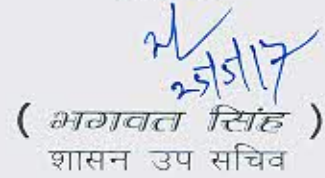 25/5/17
( भगवत सिंह )
शासन उप सचिव